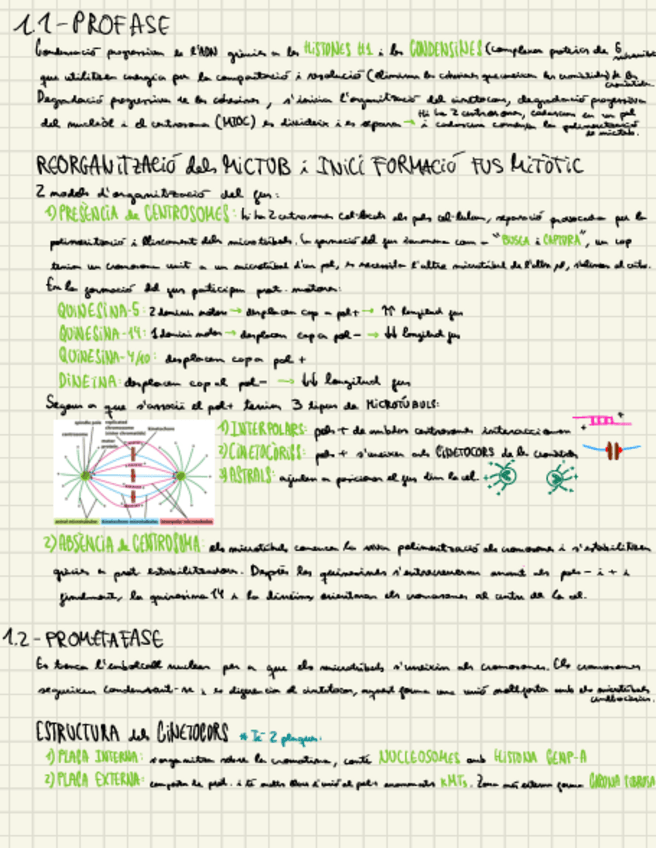 1.1-PROFASE
Condensació progressiva de l'ADN gràcies a les HISTONES H1 i les CONDENSINES (complexes proteics de 6
que utilitzen energia per la compactació i resolució (eliminen les cohesines que uneixen les cromàtides) de les
Degradació progressiva de les cohesines, s'inicia l'organització del cinetocor, degradació progressiva
del nuclèol i el centrosoma (MTOC) es divideix i es separa → Hi ha 2 centrosomes, cadascun en un pol
i cadascun comença la polimerització
de microtúb.
REORGANITZACIÓ dels MICTUB i INICI FORMACIÓ FUS MITÒTIC
2 models d'organització del fus:
1) PRESÈNCIA de CENTROSOMES: hi ha 2 centrosomes col·locats als pols cel·lulars, separació provocada per la
polimerització i lliscament dels microtúbuls. La formació del fus s'anomena com - "BUSCA i CAPTURA", un cop
tenim un cromosoma unit a un microtúbul d'un pol, es necessita l'altre microtúbul de l'altre pol,
En la formació del fus participen prot. motores:
QUINESINA-5: 2 dominis motor → desplacen cap a pol + → ↑↑ longitud fus
QUINESINA-14: 1 domini motor → desplacen cap a pol - → ↓↓ longitud fus
QUINESINA-4/10: desplacen cap a pol +
DINEÏNA: desplacen cap al pol - → ↓↓ longitud fus
Segons a que s'associï el pol + tenim 3 tipus de MICROTÚBULS:
1) INTERPOLARS: pols + de ambdos centrosomes interaccionen
2) CINETOCÒRICS: pols + s'uneixen als CINETOCORS de les cromàtides
3) ASTRALS: ajuden a posicionar el fus dins la cel.
spindle pole
replicated chromosome (sister chromatids)
kinetochore
centrosome
motor protein
astral microtubules
kinetochore microtubules
interpolar microtubules
+
+
2) ABSÈNCIA de CENTROSOMA: els microtúbuls comencen la seva polimerització als cromosomes i s'estabilitzen
gràcies a prot estabilitzadores. Després les quinesines s'entrecreuaran amunt els pols - i + i
finalment, la quinesina 14 i la dineïna orientaran els cromosomes al centre de la cel.
1.2-PROMETAFASE
Es trenca l'embolcall nuclear per a que els microtúbuls s'uneixin als cromosomes. Els cromosomes
segueixen condensant-se i es diferencia el cinetocor, aquest forma una unió molt forta amb els microtúbuls
cinetocòrics.
ESTRUCTURA dels CINETOCORS * Té 2 plaques.
1) PLACA INTERNA: s'organitza sobre la cromatina, conté NUCLEOSOMES amb HISTONA CENP-A
2) PLACA EXTERNA: composta de prot. i té molts llocs d'unió al pols anomenats KMTs. Zona més externa forma CORONA FIBROSA